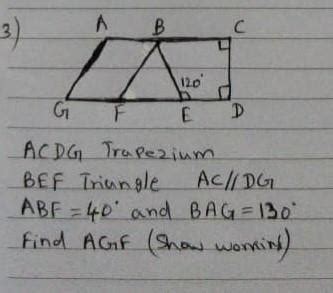 3)
A B C
120°
G F E D
ACDG Trapezium
BEF Triangle AC//DG
ABF = 40° and BAG = 130°
Find AGF (Show working)